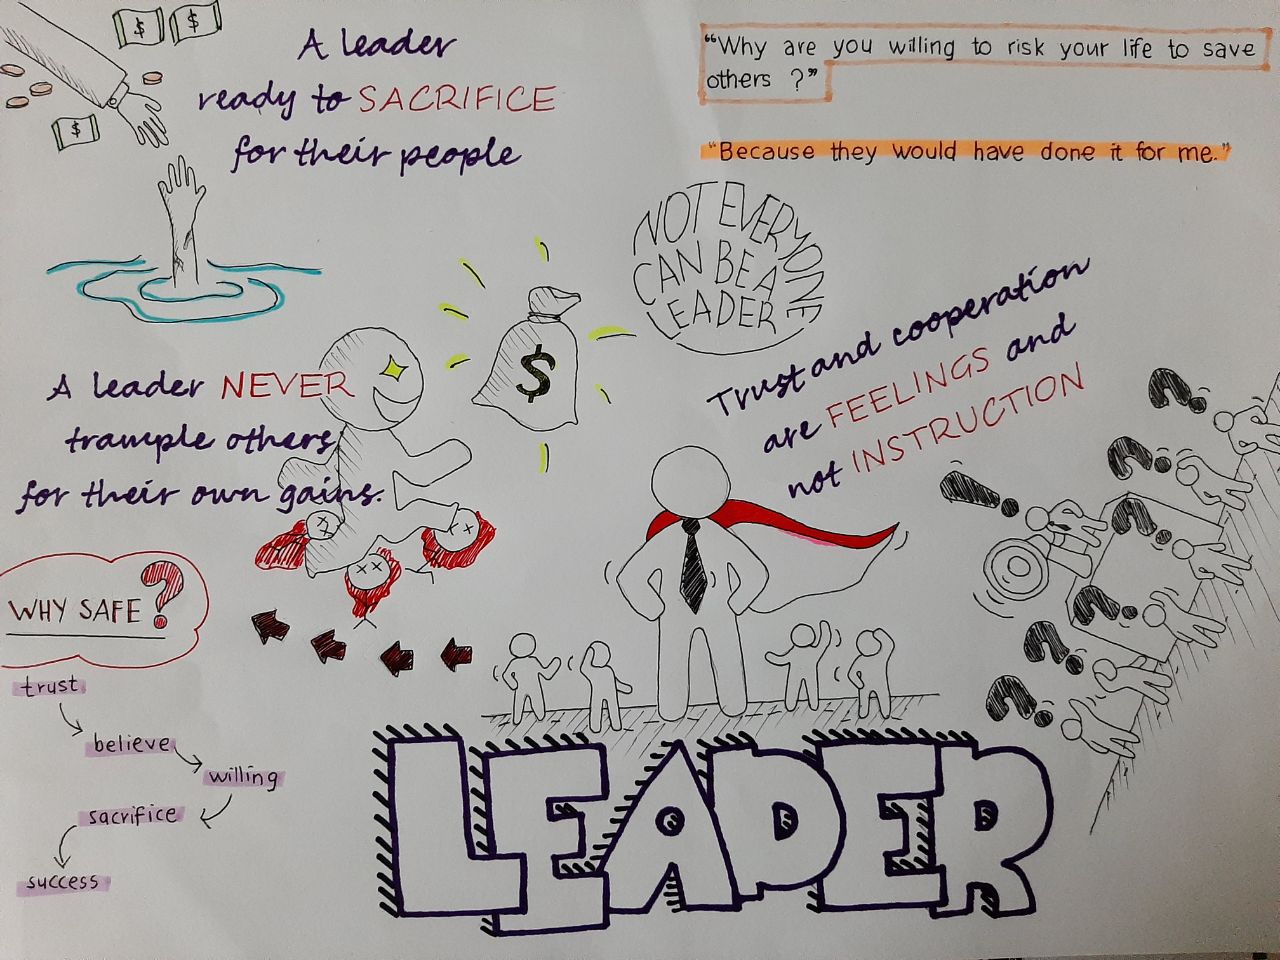 A leader
ready to SACRIFICE
for their people
$
$
$
“Why are you willing to risk your life to save
others ?”
“Because they would have done it for me.”
NOT EVERYONE
CAN BE A
LEADER
Trust and cooperation
are FEELINGS and
not INSTRUCTION
A leader NEVER
trample others
for their own gains.
$
WHY SAFE?
trust
believe
willing
sacrifice
success
!
?
?
?
?
?
?
LEADER